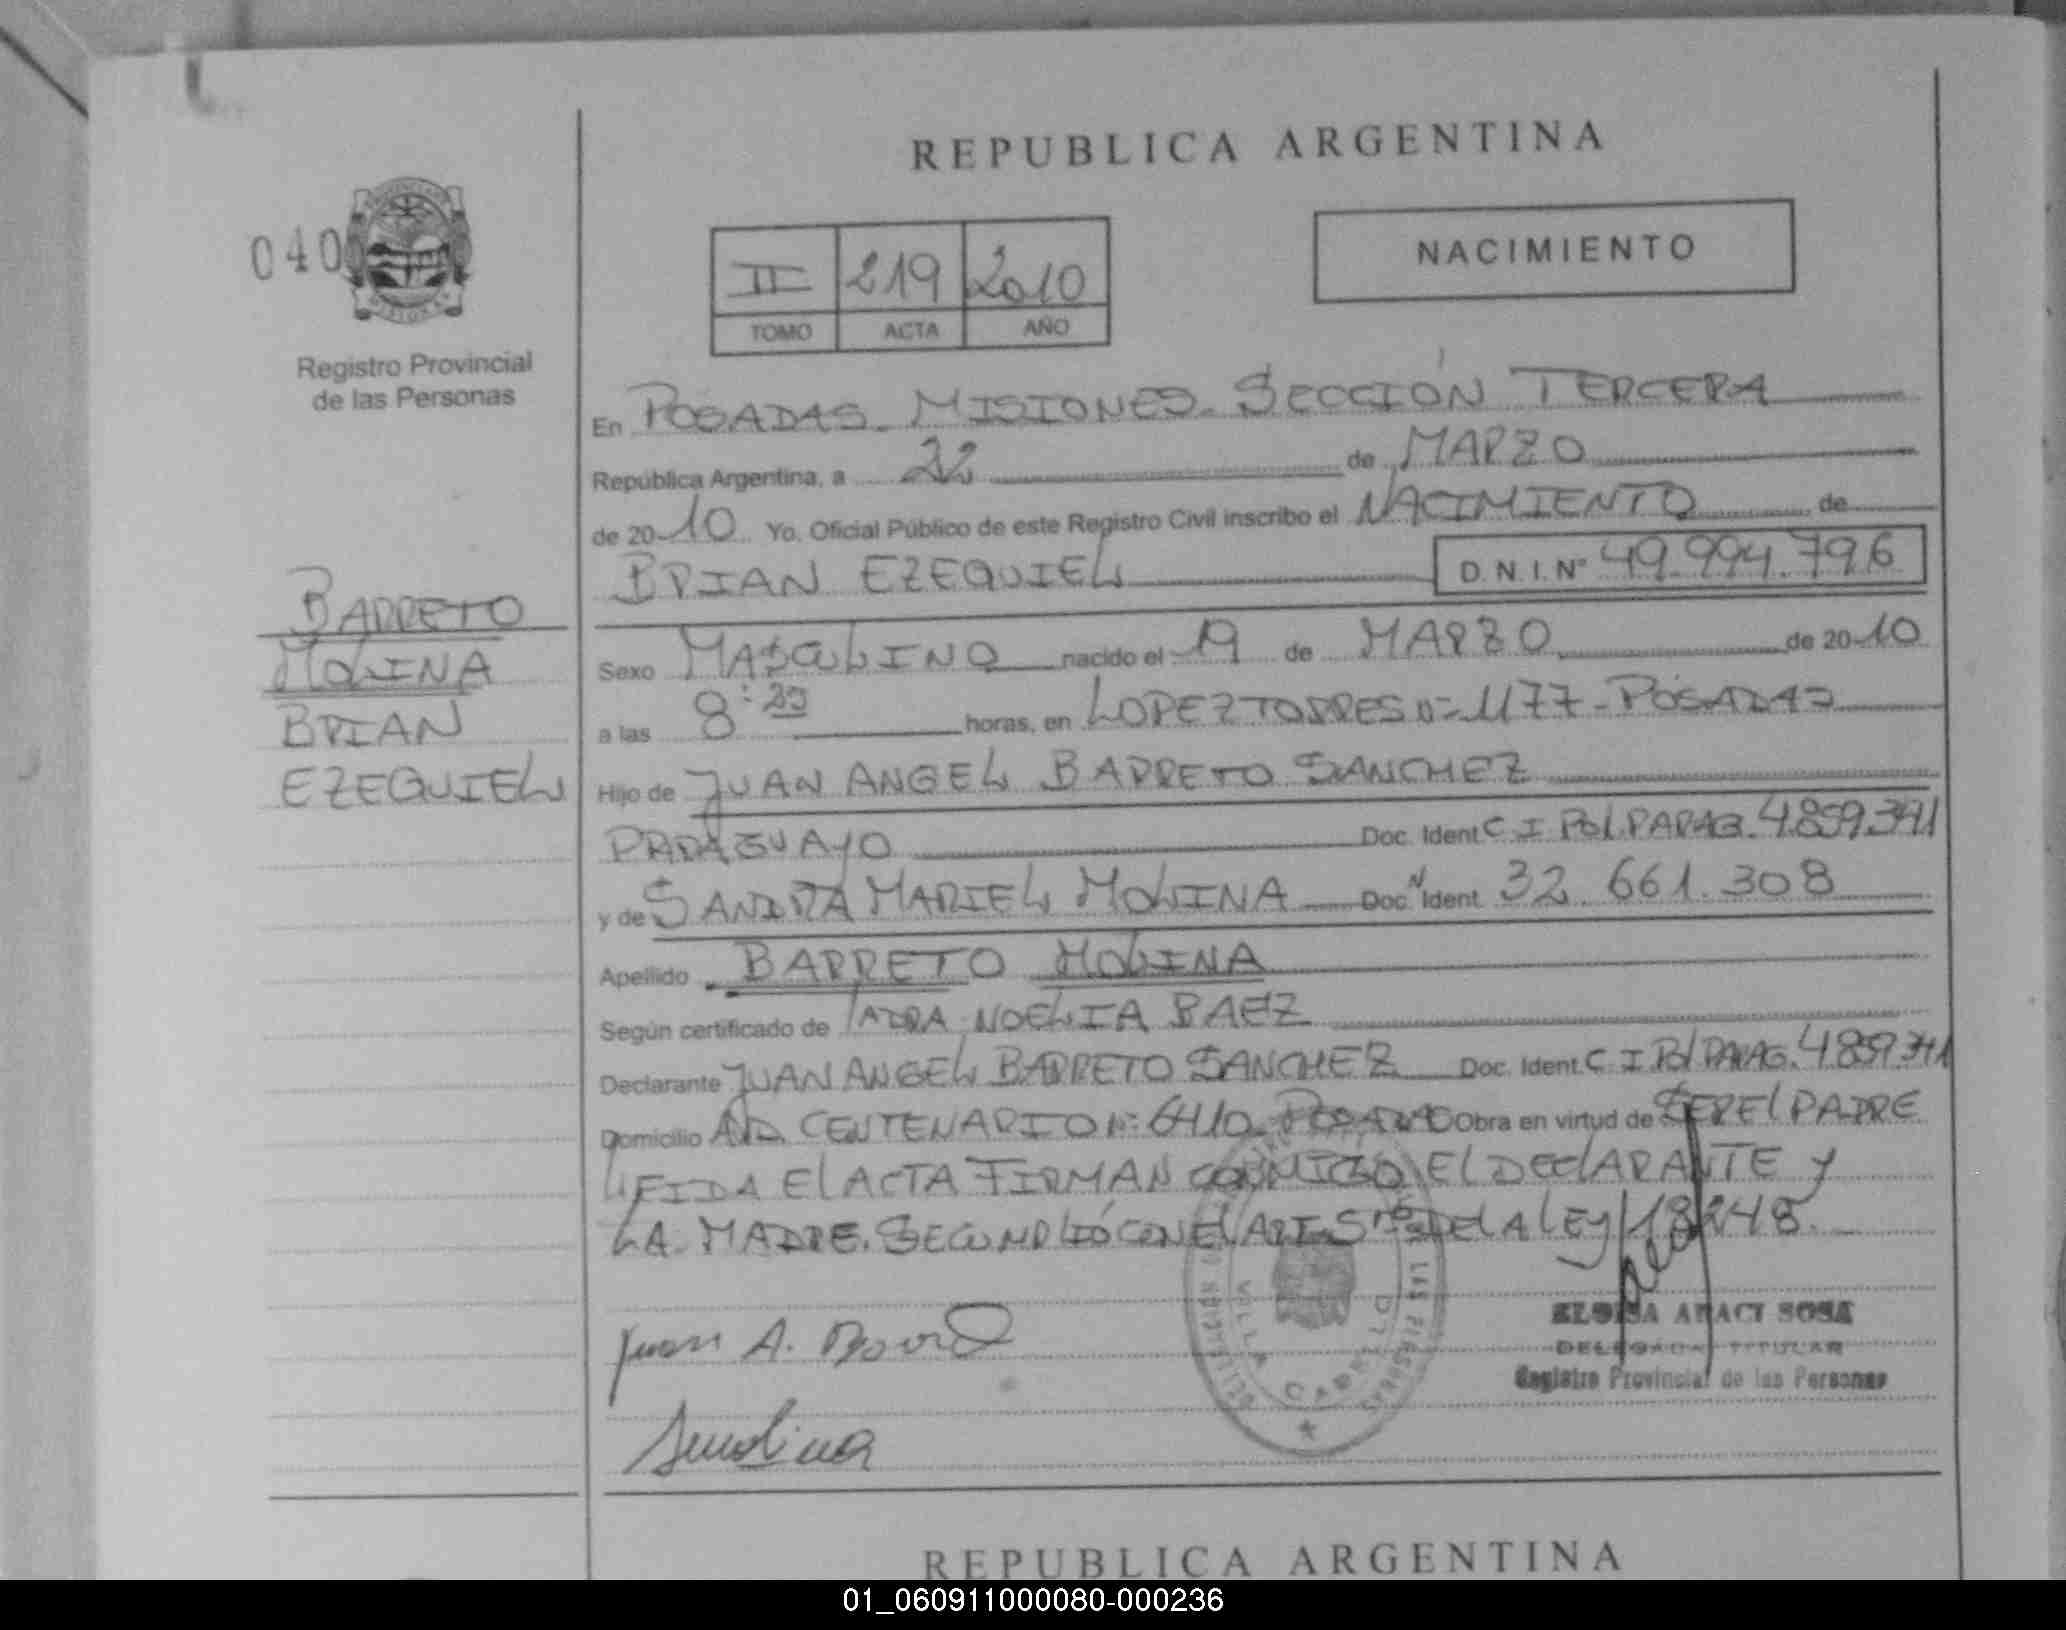 REPUBLICA ARGENTINA
040
NACIMIENTO
II 219 2010
TOMO ACTA AÑO
Registro Provincial
de las Personas
En POSADAS. MISIONES. SECCIÓN TERCERA
República Argentina, a 22 de MARZO
de 2010 Yo. Oficial Público de este Registro Civil inscribo el NACIMIENTO de
BRIAN EZEQUIEL D.N.I.Nº 49.994.796
BARRETO
MOLINA
BRIAN
EZEQUIEL
Sexo MASCULINO nacido el 19 de MARZO de 2010
a las 8: horas, en LOPEZ TORRES Nº 1177 - POSADAS
Hijo de JUAN ANGEL BARRETO SANCHEZ
PARAGUAYO Doc. Ident C.I. Pol. PARAG. 4.859.341
y de SANDRA MARIEL MOLINA Doc. Ident. 32.661.308
Apellido BARRETO MOLINA
Según certificado de NOELIA BAEZ
Declarante JUAN ANGEL BARRETO SANCHEZ Doc. Ident. C.I. Pol PARAG. 4.859.341
Domicilio AVD. CENTENARIO Nº 6410 POSADAS Obra en virtud de SER EL PADRE
LEIDA El ACTA FIRMAN CONMIGO El DECLARANTE y
LA MADRE. SEGUN ART 5 DE LA LEY 18248.
Juan A.
SMolina
VILLA CABELLO
LAS PERSONAS
ELOISA ARACI SOSA
DELEGADA TITULAR
Registro Provincial de las Personas
REPUBLICA ARGENTINA
01_060911000080-000236